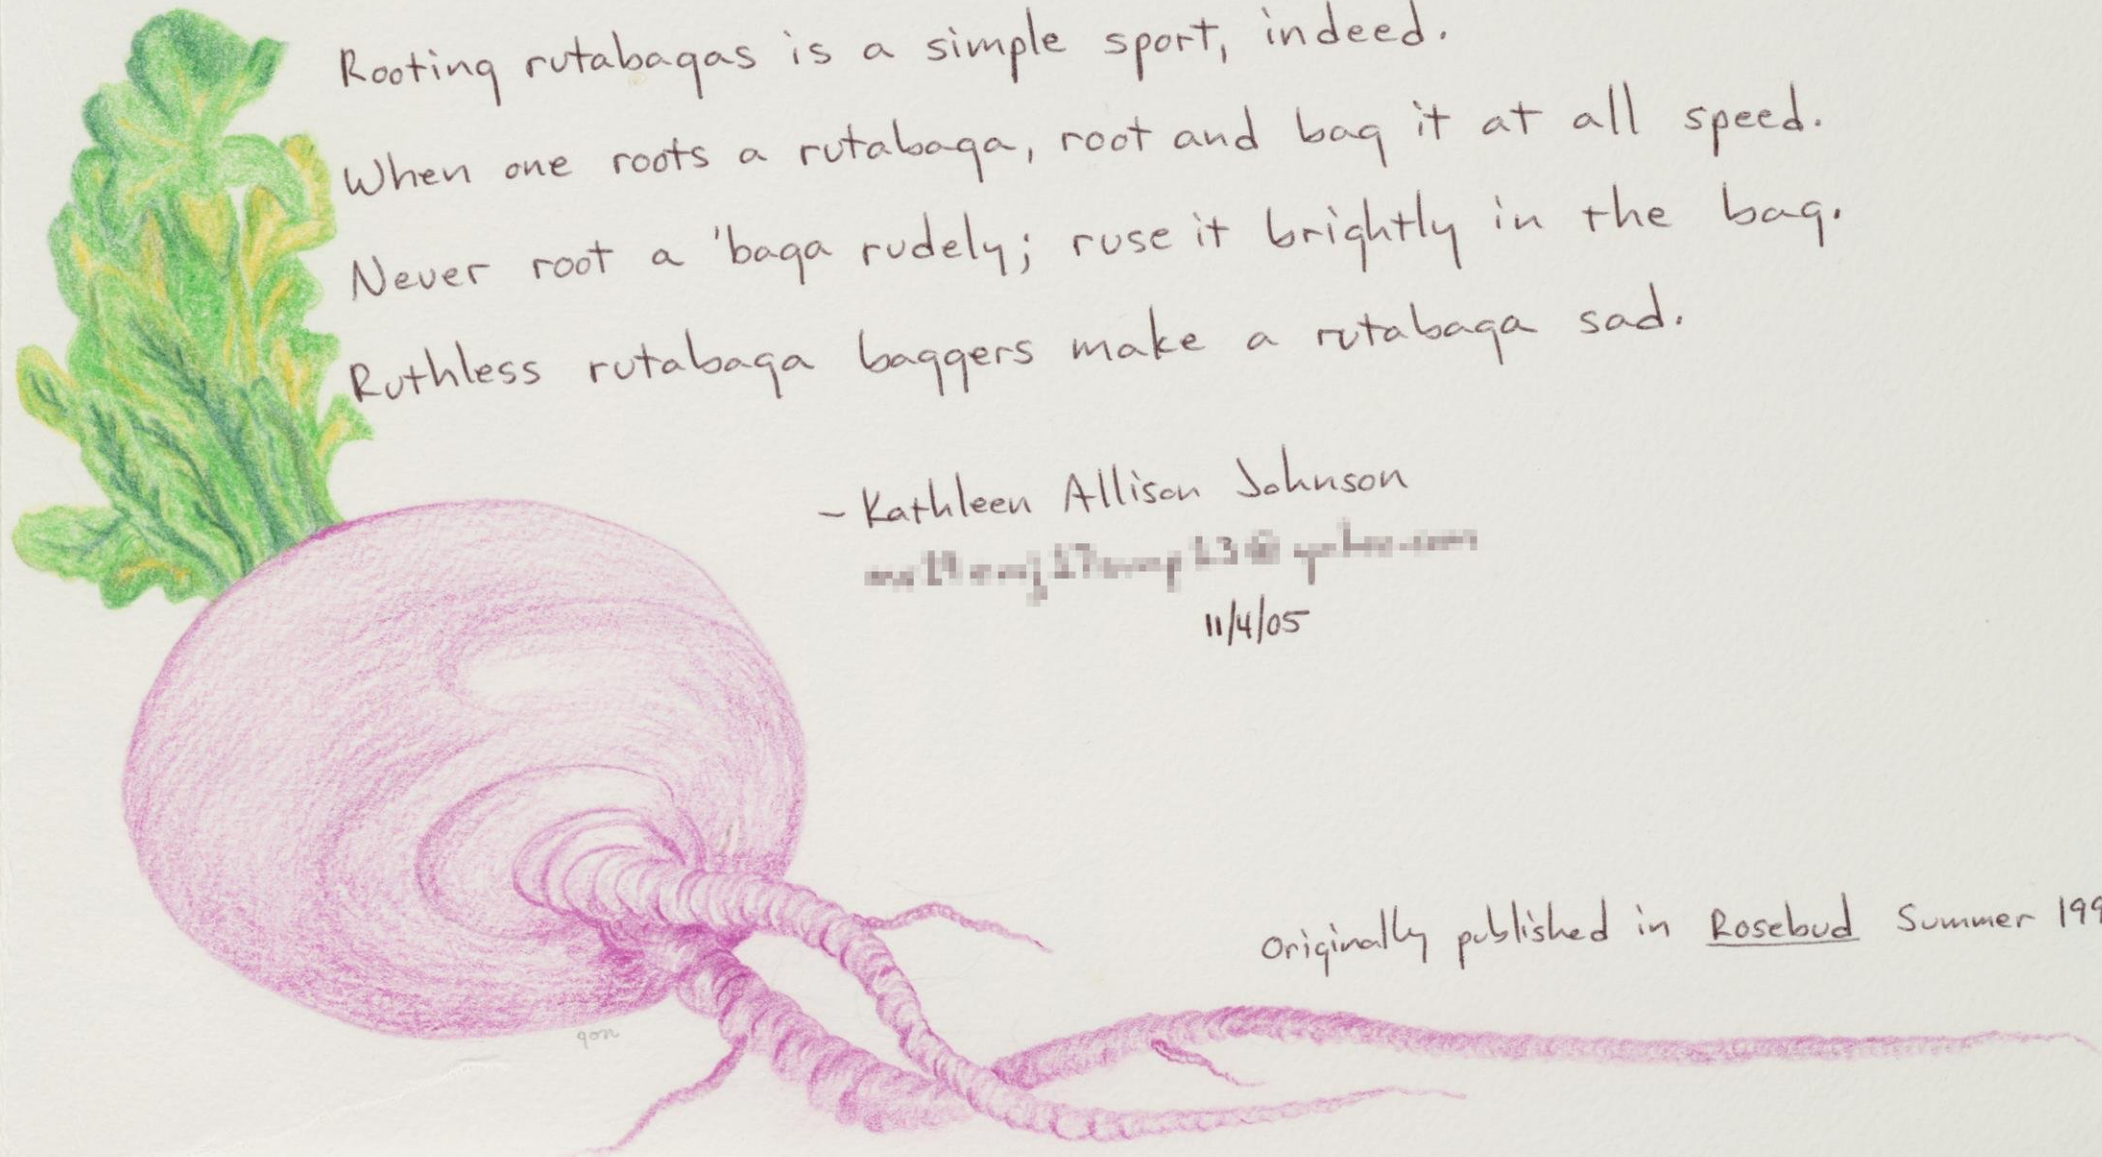 Rooting rutabagas is a simple sport, indeed.
When one roots a rutabaga, root and bag it at all speed.
Never root a 'baga rudely; ruse it brightly in the bag.
Ruthless rutabaga baggers make a rutabaga sad.
~Kathleen Allison Johnson
11/4/05
Originally published in Rosebud Summer 199